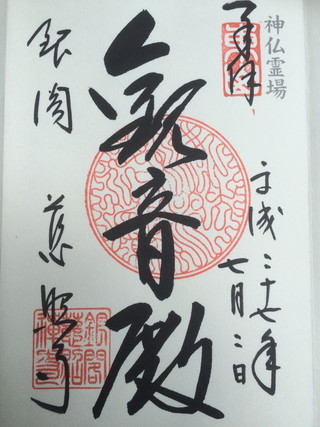 神仏霊場
奉拝
平成二十七年
七月二日
観音殿
銀閣 慈照寺
銀閣
慈照
禅寺